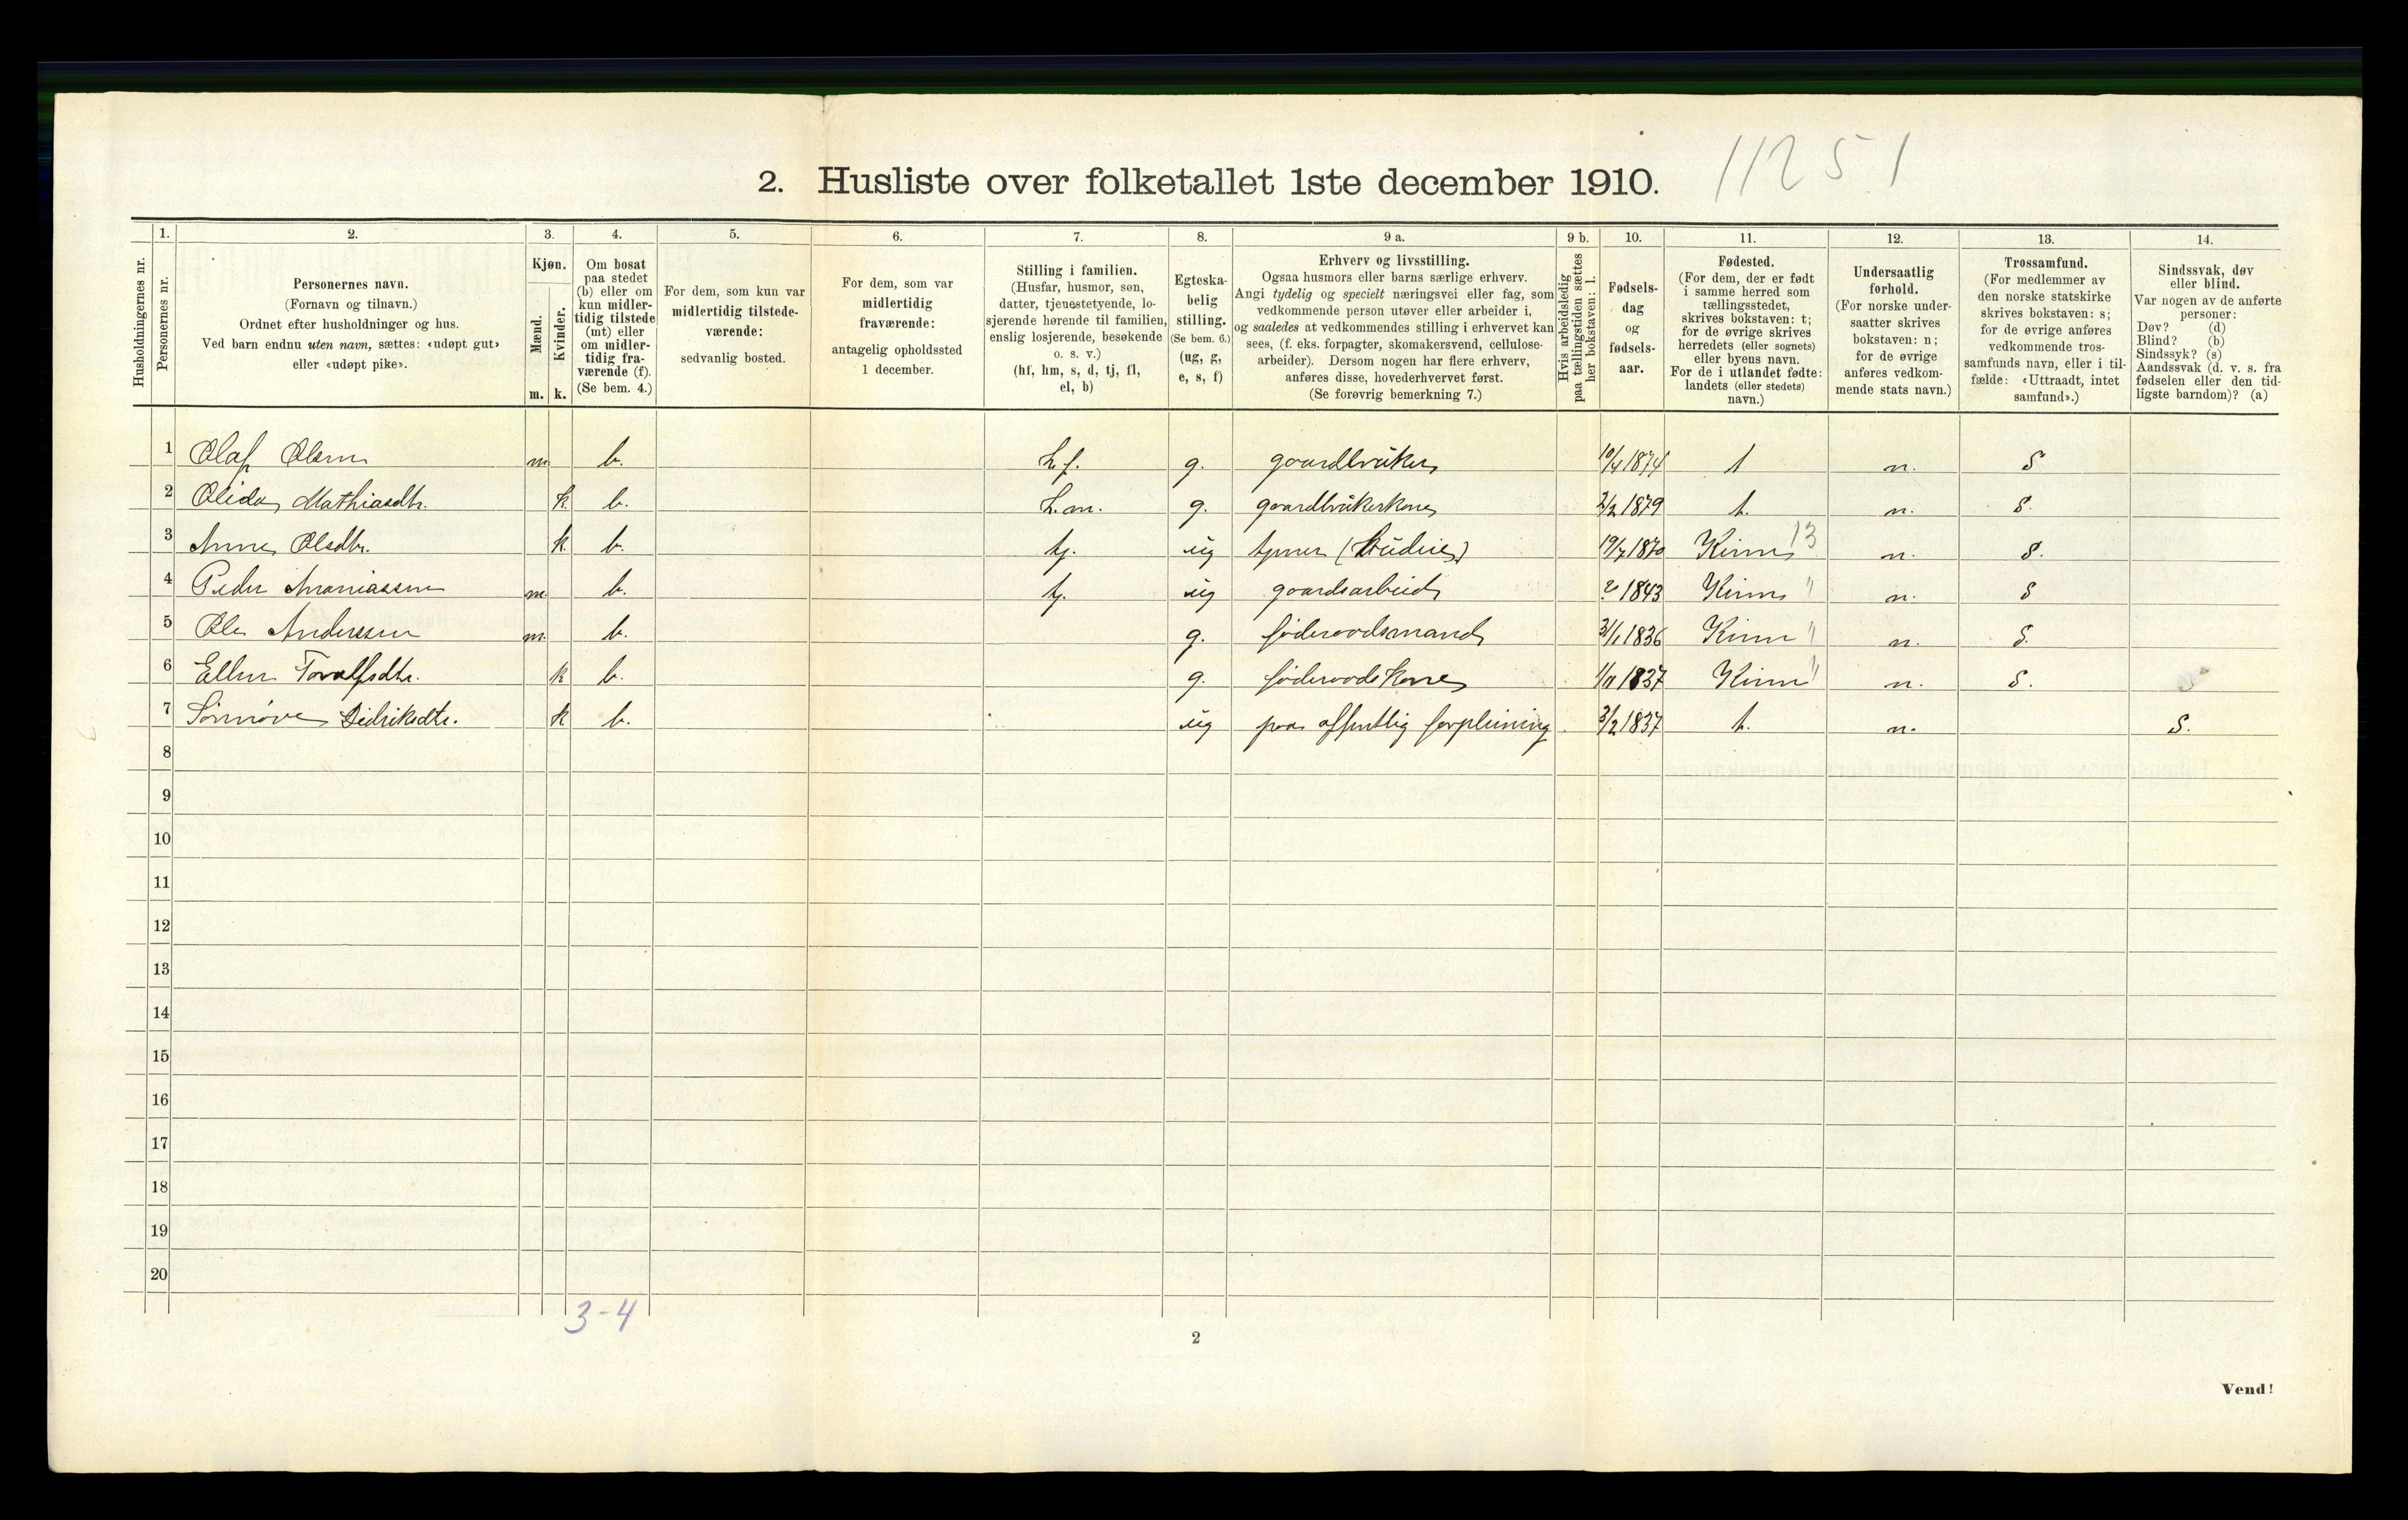 2. Husliste over folketallet 1ste december 1910.
11251
1. 2. 3. 4. 5. 6. 7. 8. 9 a. 9 b. 10. 11. 12. 13. 14.
Husholdningernes nr.
Personernes nr.
Personernes navn.
(Fornavn og tilnavn.)
Ordnet efter husholdninger og hus.
Ved barn endnu uten navn, sættes: «udøpt gut»
eller «udøpt pike».
Kjøn.
Mænd.
Kvinder.
m. k.
Om bosat
paa stedet
(b) eller om
kun midler-
tidig tilstede
(mt) eller
om midler-
tidig fra-
værende (f).
(Se bem. 4.)
For dem, som kun var
midlertidig tilstede-
værende:
sedvanlig bosted.
For dem, som var
midlertidig
fraværende:
antagelig opholdssted
1 december.
Stilling i familien.
(Husfar, husmor, søn,
datter, tjenestetyende, lo-
sjerende hørende til familien,
enslig losjerende, besøkende
o. s. v.)
(hf, hm, s, d, tj, fl,
el, b)
Egteska-
belig
stilling.
(Se bem. 6.)
(ug, g,
e, s, f)
Erhverv og livsstilling.
Ogsaa husmors eller barns særlige erhverv.
Angi tydelig og specielt næringsvei eller fag, som
vedkommende person utøver eller arbeider i,
og saaledes at vedkommendes stilling i erhvervet kan
sees, (f. eks. forpagter, skomakersvend, cellulose-
arbeider). Dersom nogen har flere erhverv,
anføres disse, hovederhvervet først.
(Se forøvrig bemerkning 7.)
Hvis arbeidsledig
paa tællingstiden sættes
her bokstaven: l.
Fødsels-
dag
og
fødsels-
aar.
Fødested.
(For dem, der er født
i samme herred som
tællingsstedet,
skrives bokstaven: t;
for de øvrige skrives
herredets (eller sognets)
eller byens navn.
For de i utlandet fødte:
landets (eller stedets)
navn.)
Undersaatlig
forhold.
(For norske under-
saatter skrives
bokstaven: n;
for de øvrige
anføres vedkom-
mende stats navn.)
Trossamfund.
(For medlemmer av
den norske statskirke
skrives bokstaven: s;
for de øvrige anføres
vedkommende tros-
samfunds navn, eller i til-
fælde: «Uttraadt, intet
samfund».)
Sindssvak, døv
eller blind.
Var nogen av de anførte
personer:
Døv? (d)
Blind? (b)
Sindssyk? (s)
Aandssvak (d. v. s. fra
fødselen eller den tid-
ligste barndom)? (a)
1 Olaf Olsen m. b. h.f. g. gaardbruker 10/4 1874 t n. S
2 Olida Mathiasdtr. k. b. h.m. g. gaardbrukerkone 2/2 1879 t. n. S.
3 Anne Olsdtr. k. b. tj. ug tjener (Budeie) 19/7 1870 Kinn 13 n. S.
4 Peder Ananiassen m. b. tj. ug gaardsarbeid 1843 Kinn " n. S
5 Ole Anderssen m. b. g. føderaadsmand 31/1 1836 Kinn " n. S.
6 Ellen Toralfsdtr. k b. g. føderaadskone 1/11 1837 Kinn " n. S.
7 Sønnøve Didriksdtr. k b. ug paa offentlig forpleining 3/2 1837 t. n. S.
8
9
10
11
12
13
14
15
16
17
18
19
20
3-4
2
Vend!